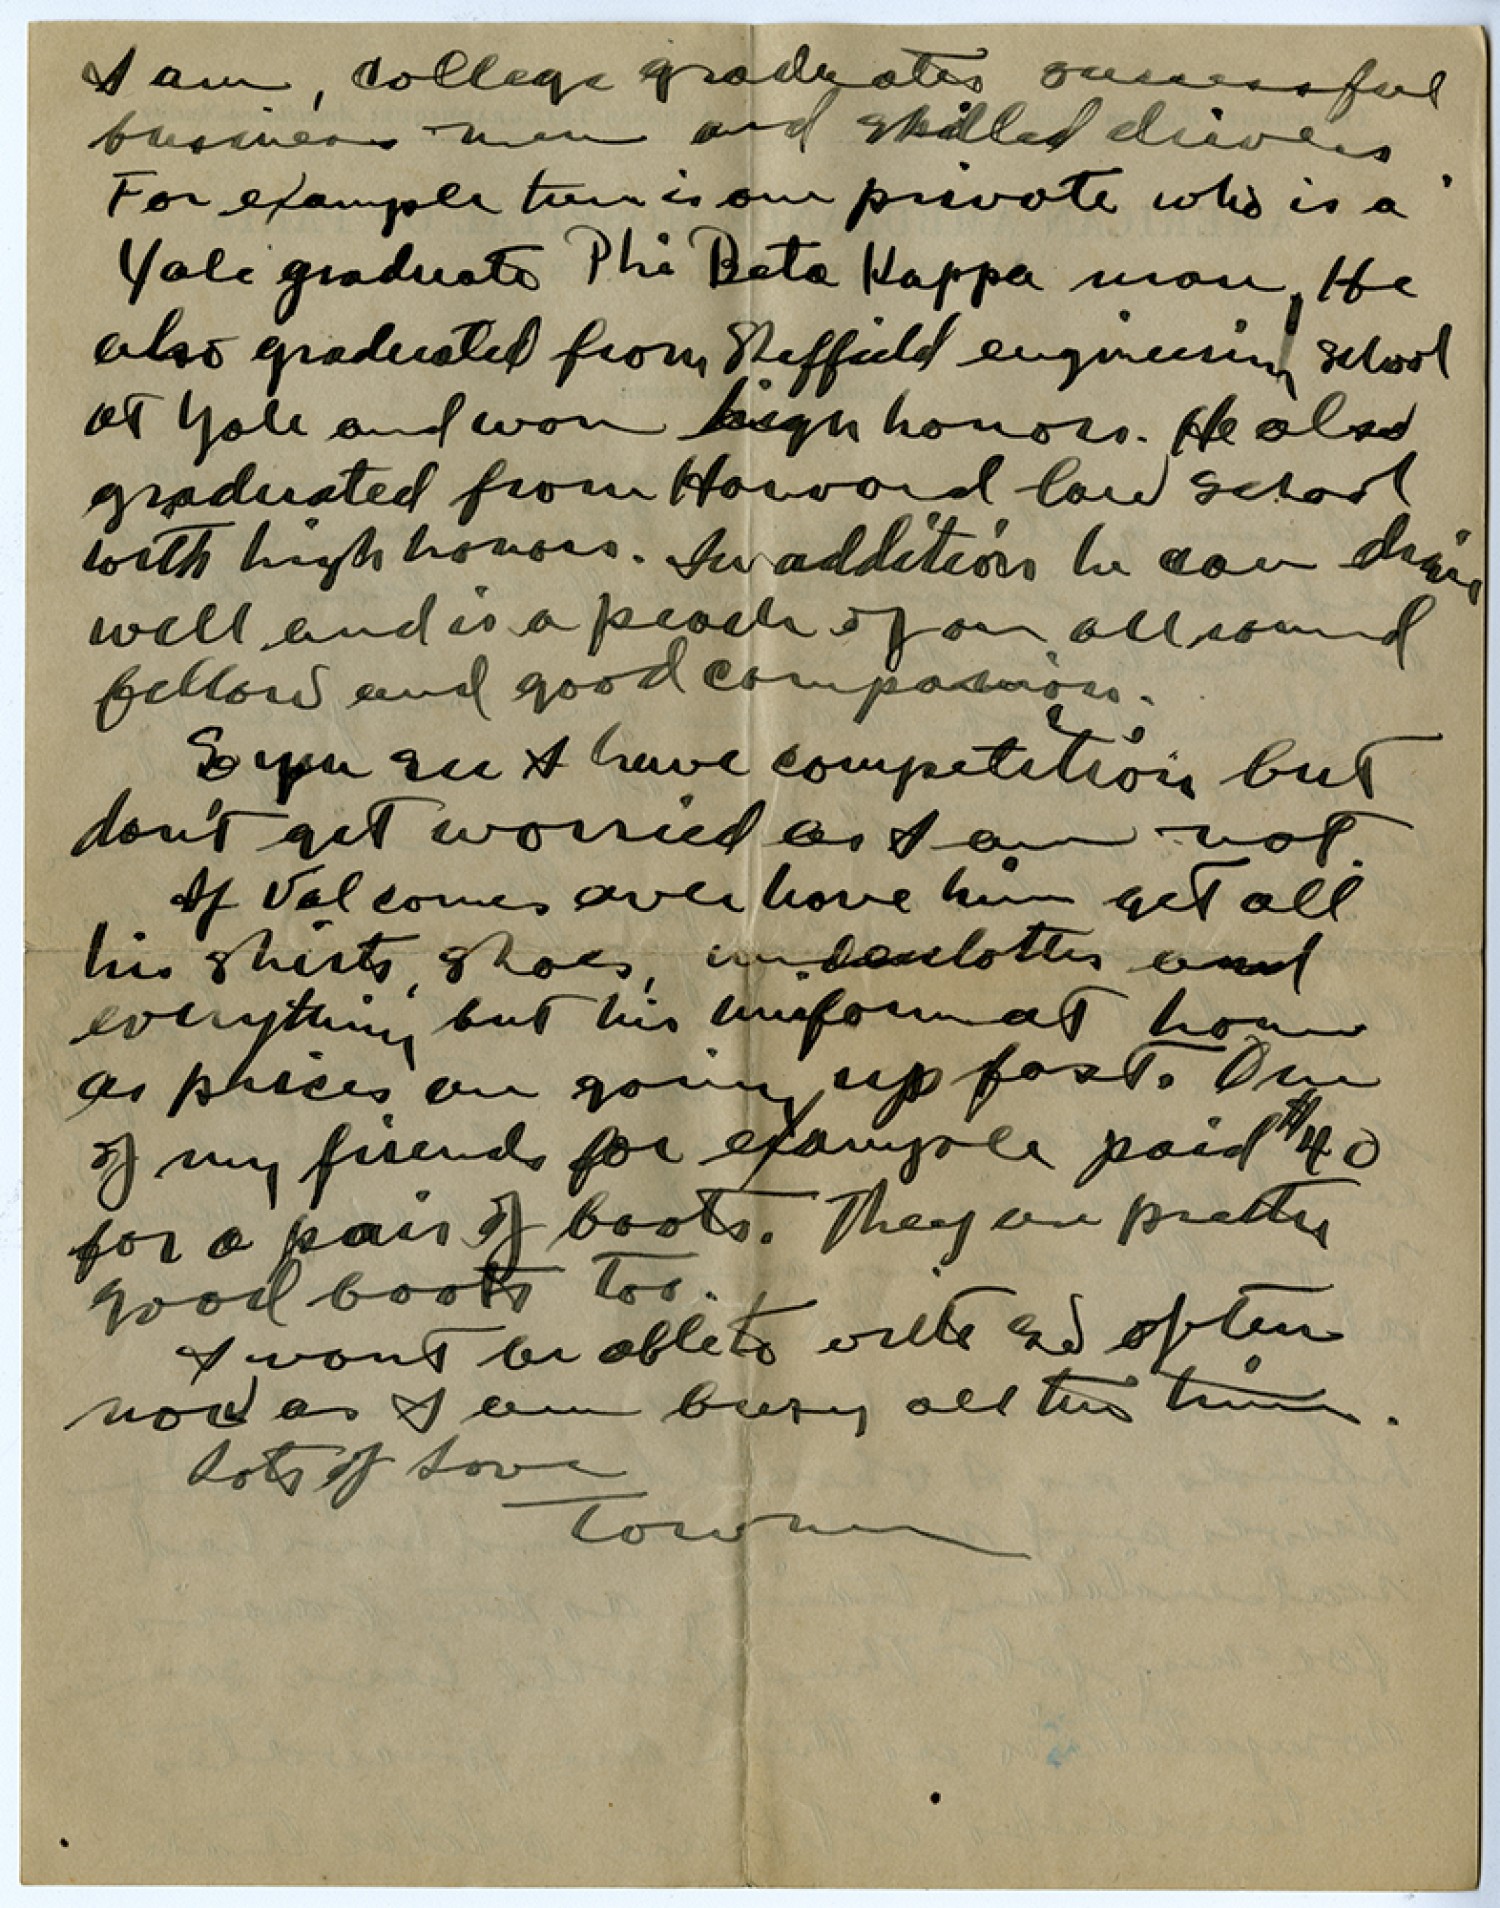 I am, college graduates successful
business men and skilled drivers
For example there is one private who is a
Yale graduate Phi Beta Kappa man. He
also graduated from Sheffield engineering school
at Yale and won high honors. He also
graduated from Harvard law school
with high honors. In addition he can drive
well and is a peach of an all round
fellow and good companion.
So you see I have competition but
don't get worried as I am not.
If Val comes over have him get all
his shirts, shoes, underclothes and
everything but his uniform at home
as prices are going up fast. One
of my friends for example paid $40
for a pair of boots. They are pretty
good boots too.
I wont be able to write so often
now as I am busy all the time.
Lots of Love